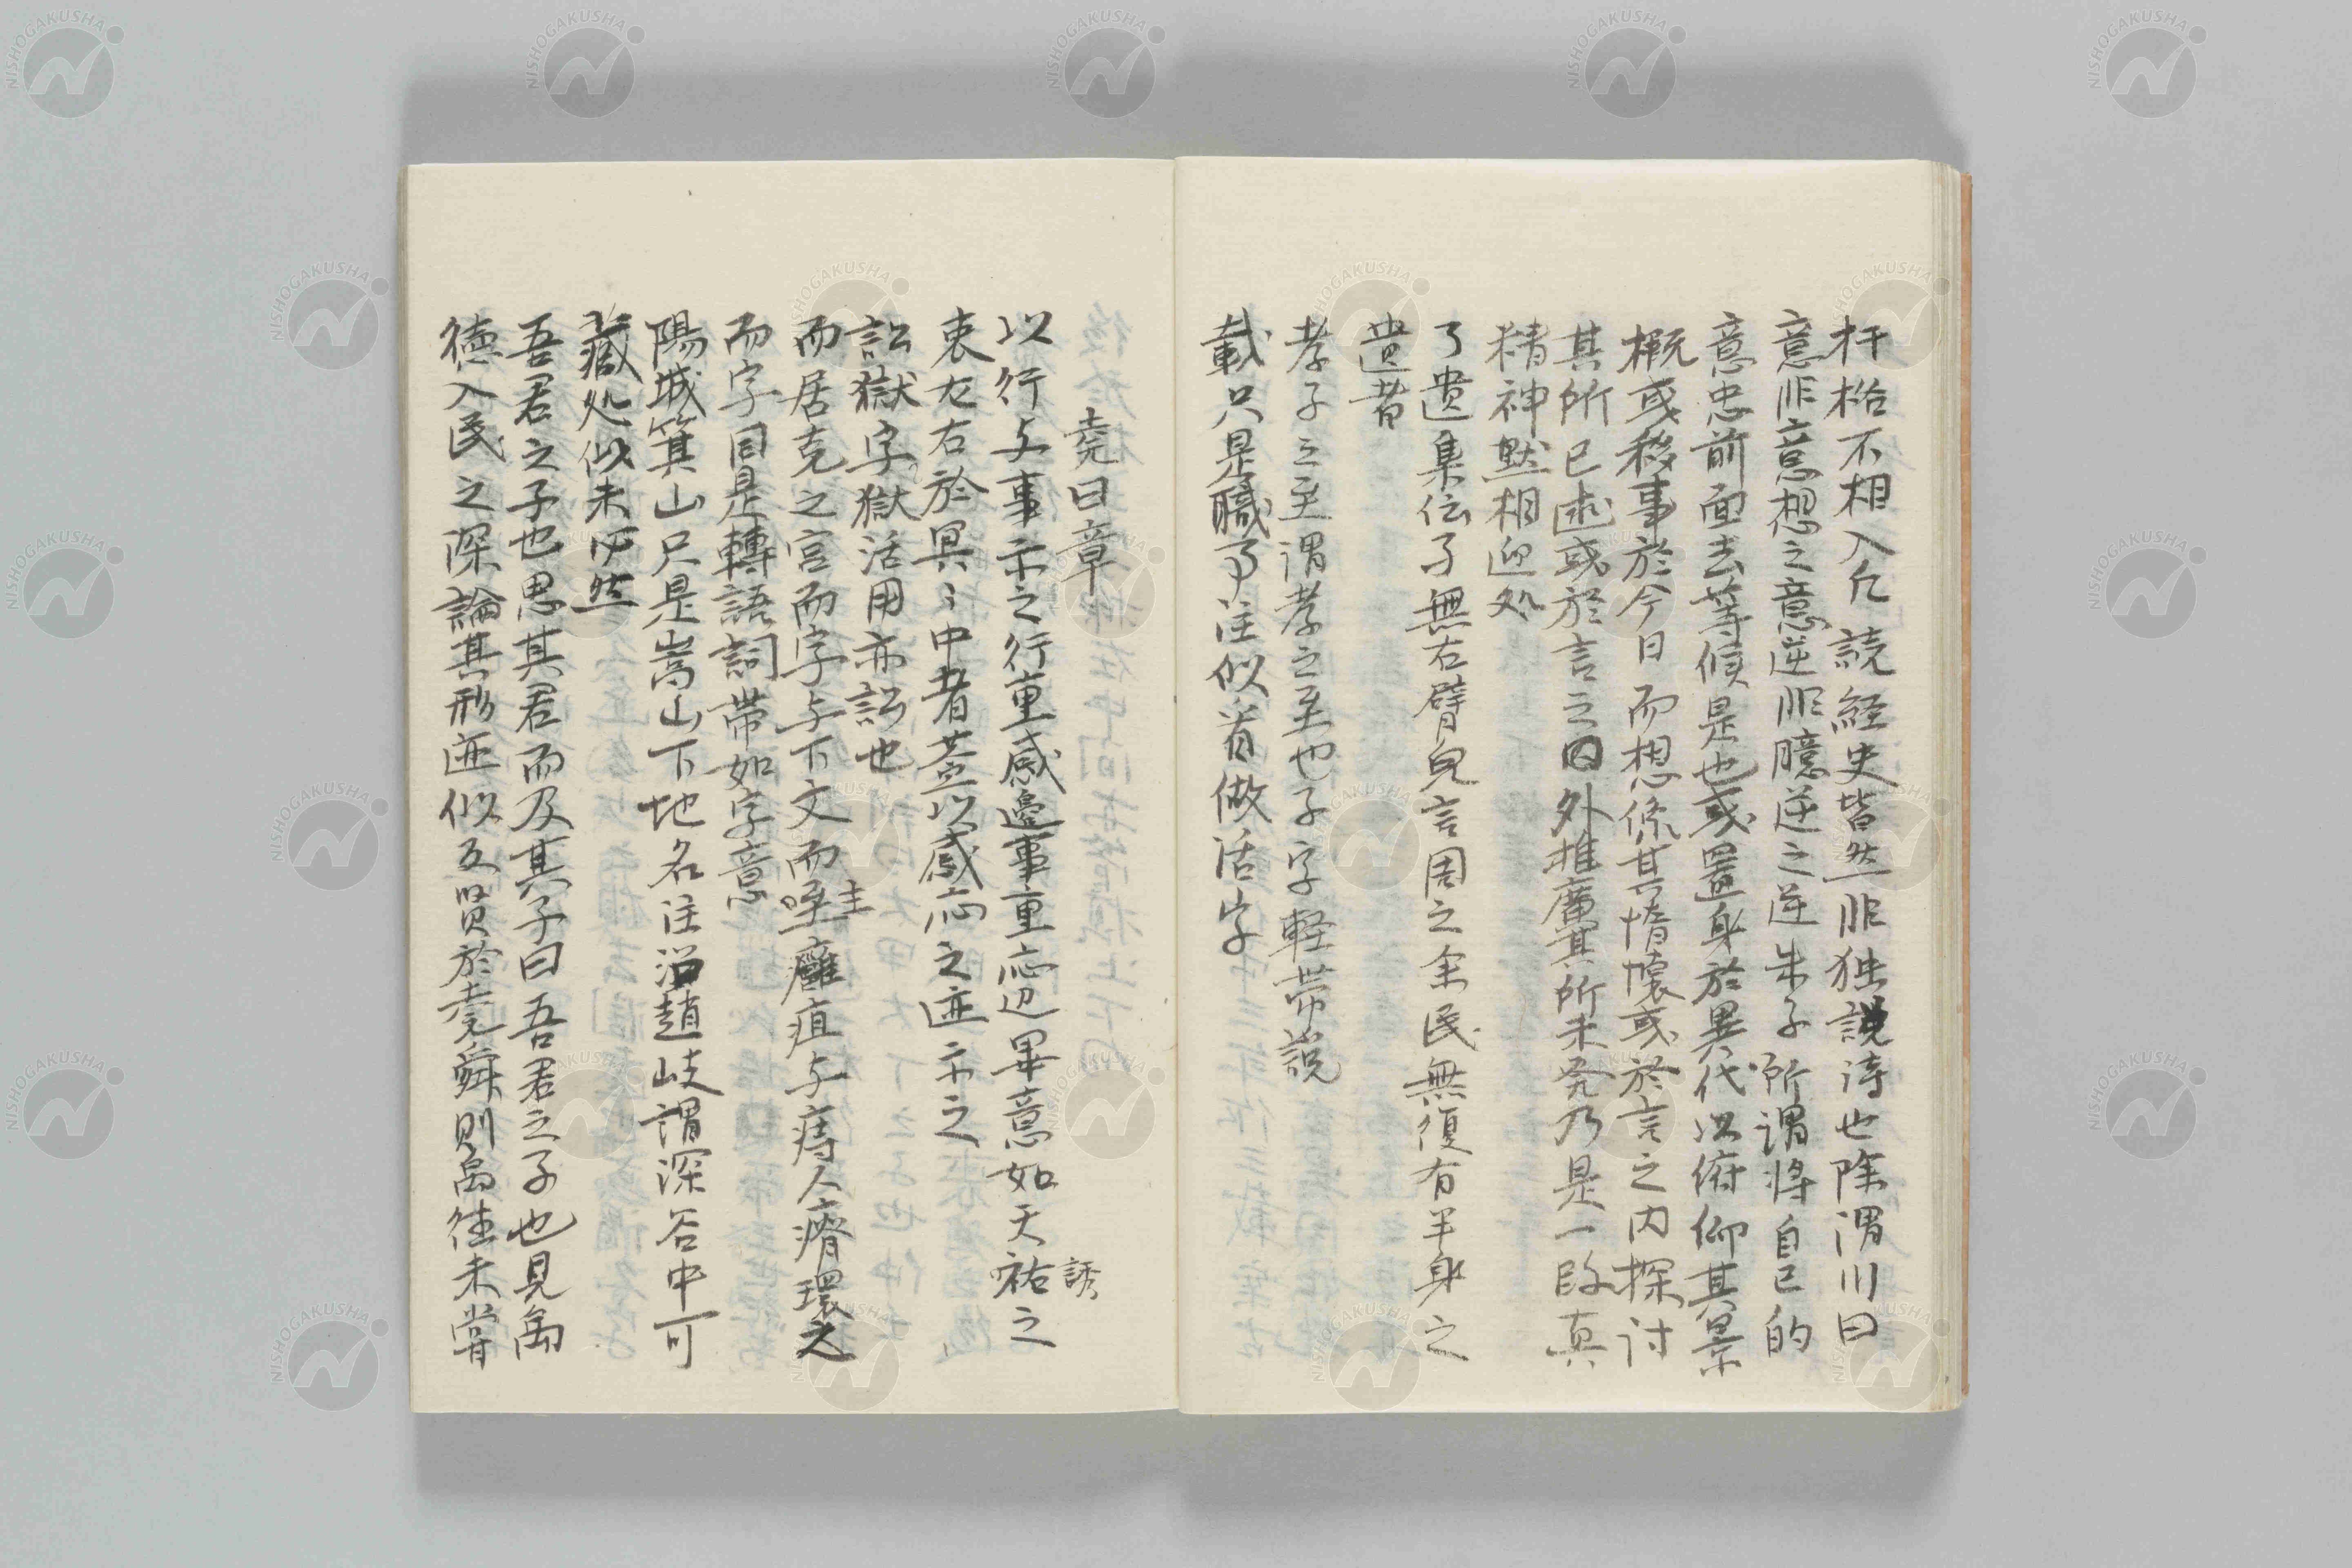 杆格不相入凡読経史皆然非独説诗也除渭川曰
意非意想之意逆非臆逆之逆朱子所謂将自己的
意忠前面去等候是也或置身於異代以俯仰其景
概或移事於今日而想像其情懐或於言之内探讨
其所已述或於言之因外推廣其所未発乃是一段真
精神黙相迎処
了遺集伝孑無右臂皃言周之余民無復有半身之
遺者
孝子之至謂孝之至也子字軽帯説
載只是職事注似着做活字
堯曰章
以行与事示之行重感邊事重応辺畢意如天祐之
誘
衷左右於冥〻中者並以感応之迹示之
訟獄字獄活用亦訟也
而居克之宮而字与下文而主癰疽与痔人瘠環之
而字同是轉語詞帯如字意
陽城箕山只是嵩山下地名注沿趙岐謂深谷中可
藏処似未必然
吾君之子也思其君而及其子曰吾君之子也見禹
徳入民之深論其形迹似互賢於堯舜則禹徃未嘗